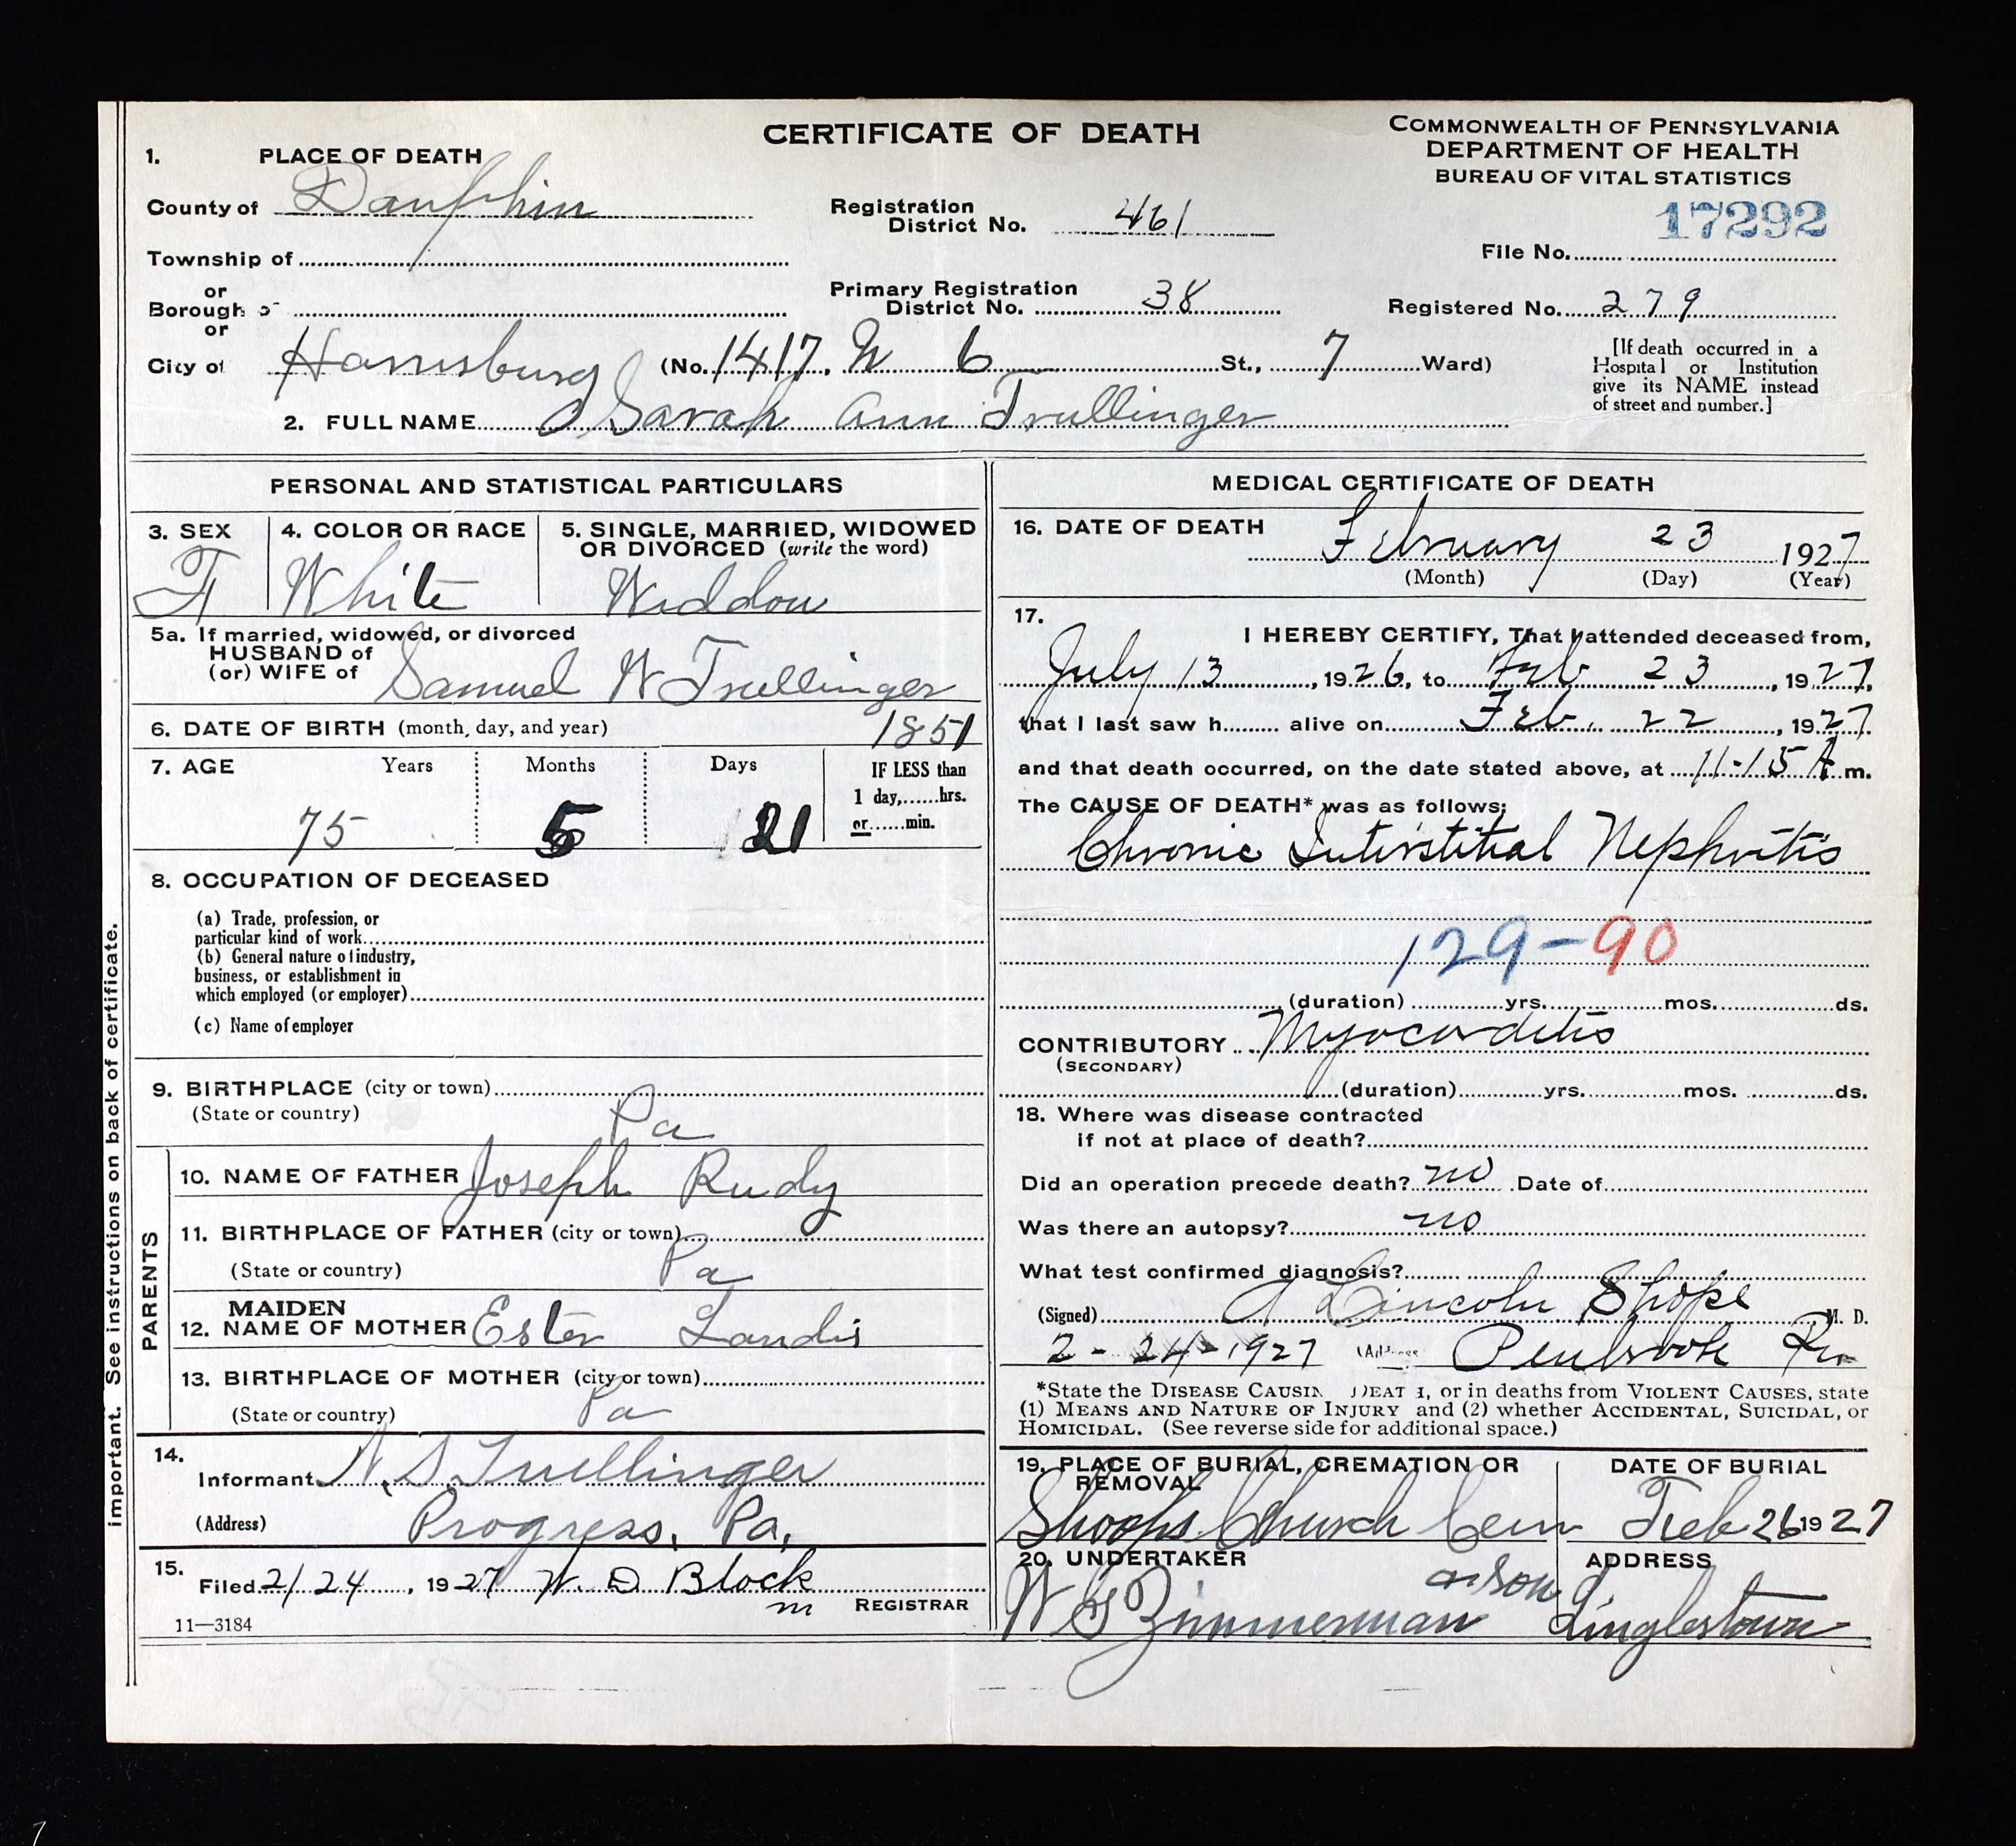 CERTIFICATE OF DEATH
COMMONWEALTH OF PENNSYLVANIA
DEPARTMENT OF HEALTH
BUREAU OF VITAL STATISTICS
1. PLACE OF DEATH
County of Dauphin
Registration District No. 461
17292
File No.
Township of
or
Borough of
or
Primary Registration District No. 38
Registered No. 279
City of Harrisburg (No. 1417. N 6 St., 7 Ward)
[If death occurred in a Hospital or Institution give its NAME instead of street and number.]
2. FULL NAME Sarah Ann Trullinger
PERSONAL AND STATISTICAL PARTICULARS
3. SEX F
4. COLOR OR RACE White
5. SINGLE, MARRIED, WIDOWED OR DIVORCED (write the word) Widdow
5a. If married, widowed, or divorced
HUSBAND of
(or) WIFE of Samuel W Trullinger
6. DATE OF BIRTH (month, day, and year) 1851
7. AGE Years Months Days IF LESS than
1 day,......hrs.
or......min.
75 5 21
8. OCCUPATION OF DECEASED
(a) Trade, profession, or
particular kind of work
(b) General nature of industry,
business, or establishment in
which employed (or employer)
(c) Name of employer
9. BIRTHPLACE (city or town)
(State or country) Pa
PARENTS
10. NAME OF FATHER Joseph Rudy
11. BIRTHPLACE OF FATHER (city or town)
(State or country) Pa
12. MAIDEN NAME OF MOTHER Ester Landis
13. BIRTHPLACE OF MOTHER (city or town)
(State or country) Pa
14.
Informant N. S. Trullinger
(Address) Progress, Pa,
15.
Filed 2/24, 1927 W. D Block
m REGISTRAR
11—3184
important. See instructions on back of certificate.
MEDICAL CERTIFICATE OF DEATH
16. DATE OF DEATH February 23 1927
(Month) (Day) (Year)
17.
I HEREBY CERTIFY, That I attended deceased from,
July 13, 1926, to Feb 23, 1927,
that I last saw h........ alive on Feb. 22, 1927
and that death occurred, on the date stated above, at 11-15 A m.
The CAUSE OF DEATH* was as follows:
Chronic Interstitial Nephritis
129-90
(duration) yrs. mos. ds.
CONTRIBUTORY Myocarditis
(SECONDARY)
(duration) yrs. mos. ds.
18. Where was disease contracted
if not at place of death?
Did an operation precede death? no Date of
Was there an autopsy? no
What test confirmed diagnosis?
(Signed) A Lincoln Shope M. D.
2-24-1927 (Address Penbrook Pa
*State the DISEASE CAUSING DEATH, or in deaths from VIOLENT CAUSES, state
(1) MEANS AND NATURE OF INJURY and (2) whether ACCIDENTAL, SUICIDAL, or
HOMICIDAL. (See reverse side for additional space.)
19. PLACE OF BURIAL, CREMATION OR REMOVAL
DATE OF BURIAL
Shoops Church Cem Feb 26 1927
20. UNDERTAKER
ADDRESS
W S Zimmerman & Son Linglestown